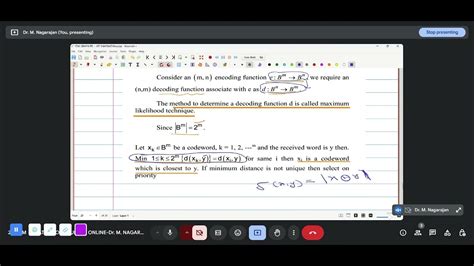 Dr. M. Nagarajan (You, presenting)
Stop presenting
Consider an (m, n) encoding function e: Bᵐ → Bⁿ we require an
(n,m) decoding function associate with e as d: Bⁿ → Bᵐ
The method to determine a decoding function d is called maximum
likelihood technique.
Since |Bᵐ| = 2ᵐ
Let xₖ ∈ Bᵐ be a codeword, k = 1, 2, ---ᵐ and the received word is y then.
Min 1≤k≤2ᵐ {d(xₖ, y)} = d(xᵢ, y) for same i then xᵢ is a codeword
which is closest to y. If minimum distance is not unique then select on
priority
δ(x,y) = |x ⊕ y|
Dr. M. Nagarajan
ONLINE-Dr. M. NAGAR...